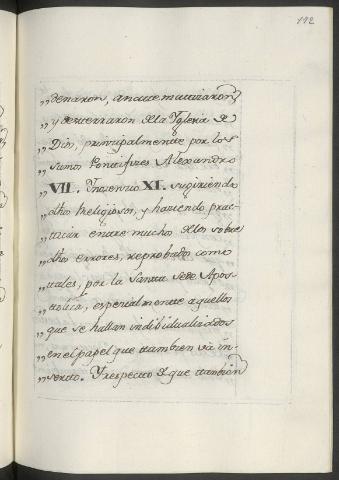 112
„denaron, anatematizaron,
„y desterraron de la Yglesia de
„Dios, principalmente por los
„sumos Pontifizes Alexandro
„VII. Ynozenzio XI. sugiriendo
„dhos Religiosos, y haziendo prac-
„ticar entre muchos de los sobre
„dhos errores, reprobados como
„tales, por la Santa Sede Apos-
„tolica, espezialmente aquellos
„que se hallan indibidualizados
„en el papel que tambien vá in-
„serto. Y respecto de que tambien